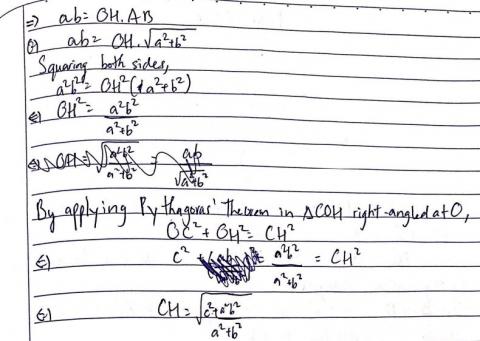 ⇒) ab = OH.AB
⇔) ab = OH.√(a²+b²)
Squaring both sides,
a²b² = OH²(a²+b²)
⇔) OH² = a²b²/(a²+b²)
By applying Pythagoras' Theorem in △COH right-angled at O,
OC² + OH² = CH²
⇔) c² + a²b²/(a²+b²) = CH²
⇔) CH = √((c²+a²b²)/(a²+b²))